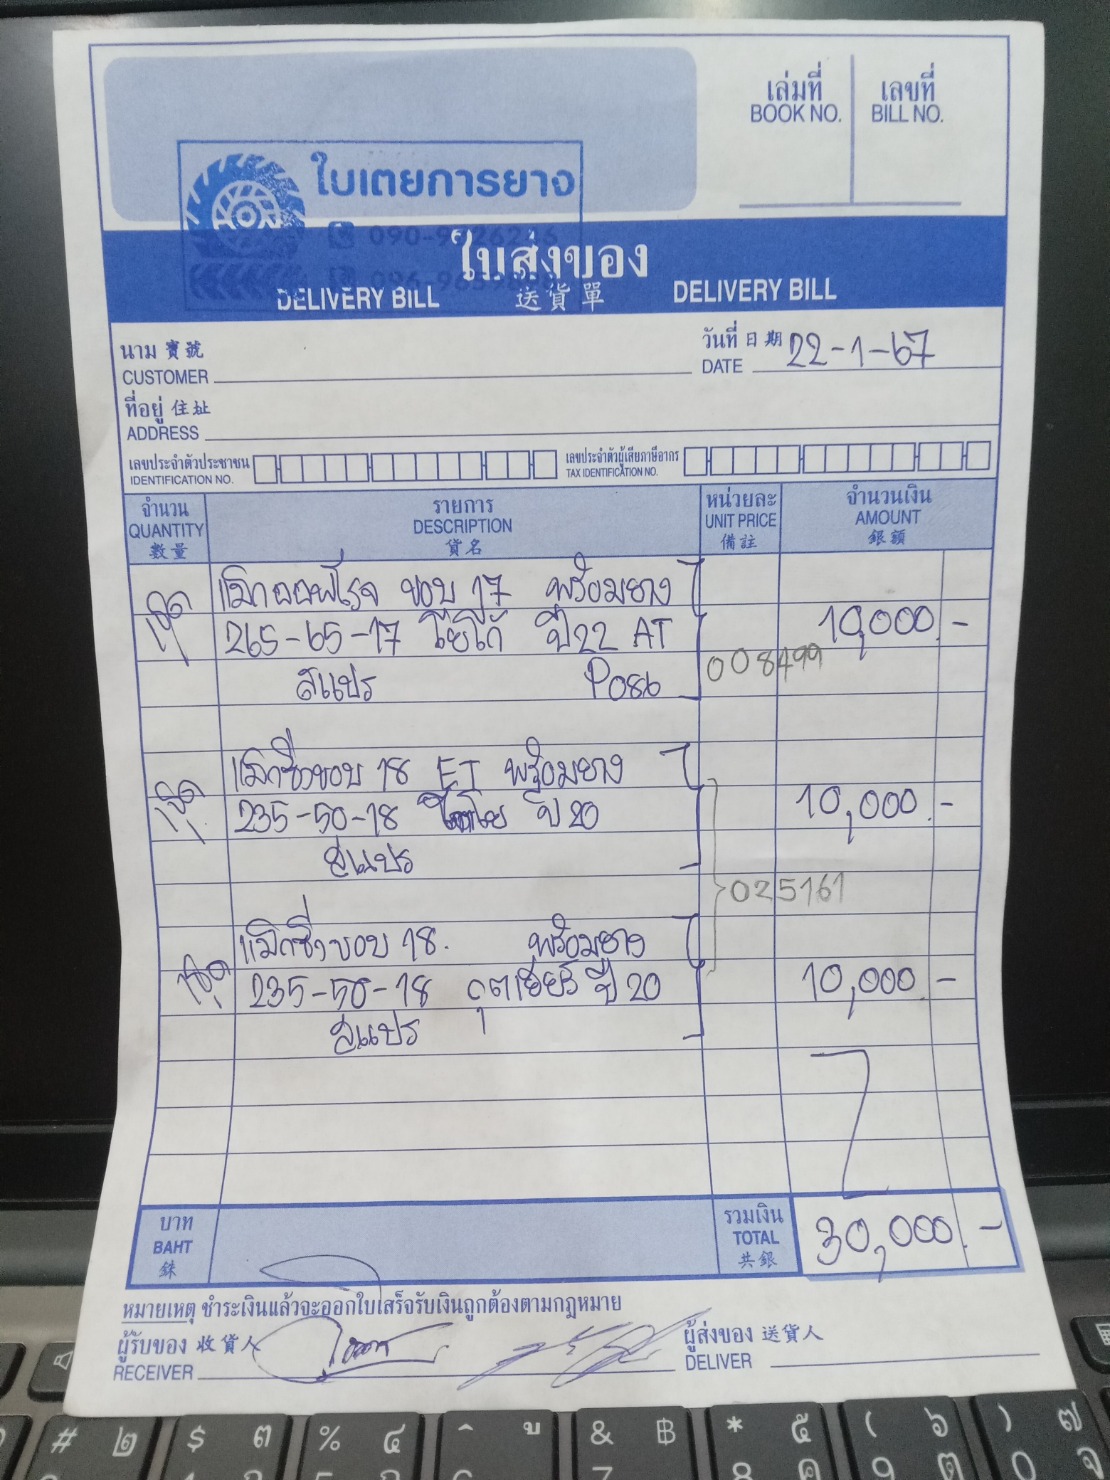 เล่มที่ เลขที่
BOOK NO. BILL NO.
ใบเตยการยาง
ใบส่งของ
DELIVERY BILL 送貨單 DELIVERY BILL
นาม 寶號 วันที่ 日期 22-1-67
CUSTOMER DATE
ที่อยู่ 住址
ADDRESS
เลขประจำตัวประชาชน เลขประจำตัวผู้เสียภาษีอากร
IDENTIFICATION NO. TAX IDENTIFICATION NO.
จำนวน รายการ หน่วยละ จำนวนเงิน
QUANTITY DESCRIPTION UNIT PRICE AMOUNT
數量 貨名 備註 銀額
ขอบ 17 พร้อมยาง
265-65-17 โยโก้ ปี 22 AT 10,000 -
สแปร P086 008499
ขอบ 18 ET พร้อมยาง
235-50-18 ปี 20 10,000 -
สแปร
025161
แม็กซิ่งขอบ 18. พร้อมยาง
235-50-18 กู๊ดเยียร์ ปี 20 10,000 -
สแปร
บาท รวมเงิน
BAHT TOTAL 30,000 -
銖 共銀
หมายเหตุ ชำระเงินแล้วจะออกใบเสร็จรับเงินถูกต้องตามกฎหมาย
ผู้รับของ 收貨人 ผู้ส่งของ 送貨人
RECEIVER DELIVER
# ๒ $ ๓ % ๔ ^ & ฿ * ๕ ( ๖ ) ๗
7 8 ค 9 ต 0 จ